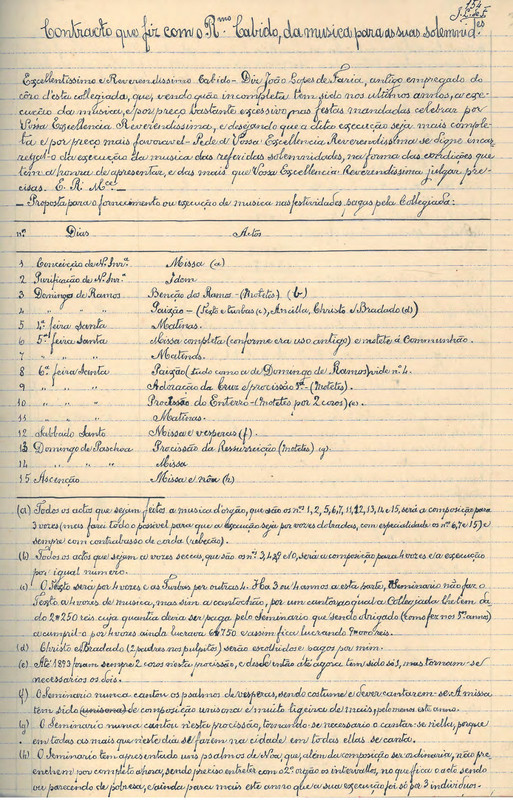 154
Contracto que fiz com o R.mo Cabido, da musica para as suas solemnid.es
Excellentissimo e Reverendissimo Cabido - Diz João Lopes de Faria, antigo empregado do
côro d'esta collegiada, que, vendo quão incompleta tem sido nos ultimos annos, a exe-
cução da musica, e por preço bastante excessivo, nas festas mandadas celebrar por
Vossa Excellencia Reverendissima, e desejando que a dita execução seja mais comple-
ta e por preço mais favoravel - Pede a Vossa Excellencia Reverendissima se digne encar-
regal-o da execução da musica das referidas solemnidades, na forma das condições que
tem a honra de apresentar, e das mais que Vossa Excellencia Reverendissima julgar pre-
cisas. E. R. M.cê -
- Proposta para o fornecimento ou execução de musica nas festividades, pagas pela Collegiada:
n.os Dias Actos
1 Conceição de N. Snr.ª Missa (a)
2 Purificação de N. Snr.ª Idem
3 Domingo de Ramos Benção dos Ramos - (Motetes) (b)
4 " " " Paixão - (Texto e turbas (c), Ancilla, Christo e Bradado (d)
5 4.ª feira Santa Matinas.
6 5.ª feira Santa Missa completa (conforme era uso antigo) e motete á Communhão.
7 " " " Matinas.
8 6.ª feira Santa Paixão (tudo como a de Domingo de Ramos) vide n.º 4.
9 " " " Adoração da Cruz e procissão (Motetes).
10 " " " Procissão do Enterro - (Motetes por 2 coros) (e).
11 " " " Matinas.
12 Sabbado Santo Missa e vesperas (f).
13 Domingo de Paschoa Procissão da Ressurreição (Motetes) (g)
14 " " " Missa
15 Ascenção Missa e nôa (h)
(a) Todos os actos que sejam feitos a musica d'orgão, que são os n.os 1, 2, 5, 6, 7, 11, 12, 13, 14 e 15, será a composição para
3 vozes (mas farei todo o possivel para que a execução seja por vozes dobradas, com especialidade os n.os 6, 7 e 15) e
sempre com contrabasso de corda (rebecão).
(b) Todos os actos que sejam a vozes seccas, que são os n.os 3, 4, 8, 9 e 10, será a composição para 4 vozes e a execução
por igual numero.
(c) O Texto será por 4 vozes e as Turbas por outras 4. Ha 3 ou 4 annos a esta parte, o Seminario não faz o
Texto a 4 vozes de musica, mas sim a cantochão, por um cantor ao qual a Collegiada lhe tem da-
do 2$250 reis cuja quantia devia ser paga pelo Seminario que sendo obrigado (como fez nos 5.os annos)
a cumpril-o por 4 vozes ainda lucrava e assim fica lucrando
(d) Christo e Bradado (2 padres nos pulpitos) serão escolhidos e pagos por mim.
(e) Até 1893 foram sempre 2 coros nesta procissão, e desde então até agora tem sido só 1, mas tornam-se
necessarios os dois.
(f) O Seminario nunca cantou os psalmos de vesperas, sendo costume e dever cantarem-se. A missa
tem sido (unisona) de composição unisona e muito ligeira de mais, pelo menos este anno.
(g) O Seminario nunca cantou n'esta procissão, tornando-se necessario o cantar-se n'ella, porque
em todas as mais que n'este dia se fazem na cidade em todas ellas se canta.
(h) O Seminario tem apresentado uns psalmos de Nôa, que, alem da composição ser ordinaria, não pre-
enchem por completo a hora, sendo preciso entreter com 2.os orgão os intervallos, no que fica o acto sendo
ou parecendo de pobresa, e ainda para mais este anno que a sua execução foi só por 3 individuos.